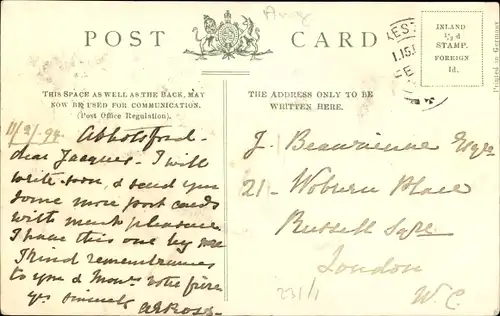 POST CARD
INLAND
½d
STAMP.
FOREIGN
1d.
Printed in Germany
THIS SPACE AS WELL AS THE BACK, MAY
NOW BE USED FOR COMMUNICATION.
(Post Office Regulation).
THE ADDRESS ONLY TO BE
WRITTEN HERE.
Abbotsford.
dear Jacques. I will
write soon, & send you
some more post cards
with much pleasure
I have this one by me
Kind remembrances
to you & Mons. votre frère
yrs sincerely
J. Esqre
21 - Woburn Place
Russell Sqre
London
W.C.
231/1